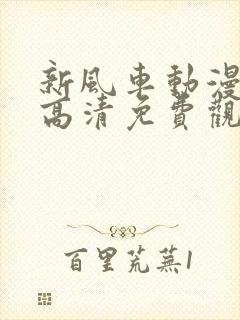 新風車動漫
高清免費觀
百里荒蕪1